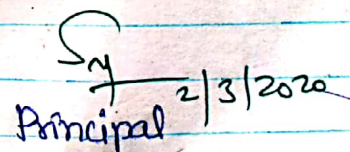 2/3/2020
Principal